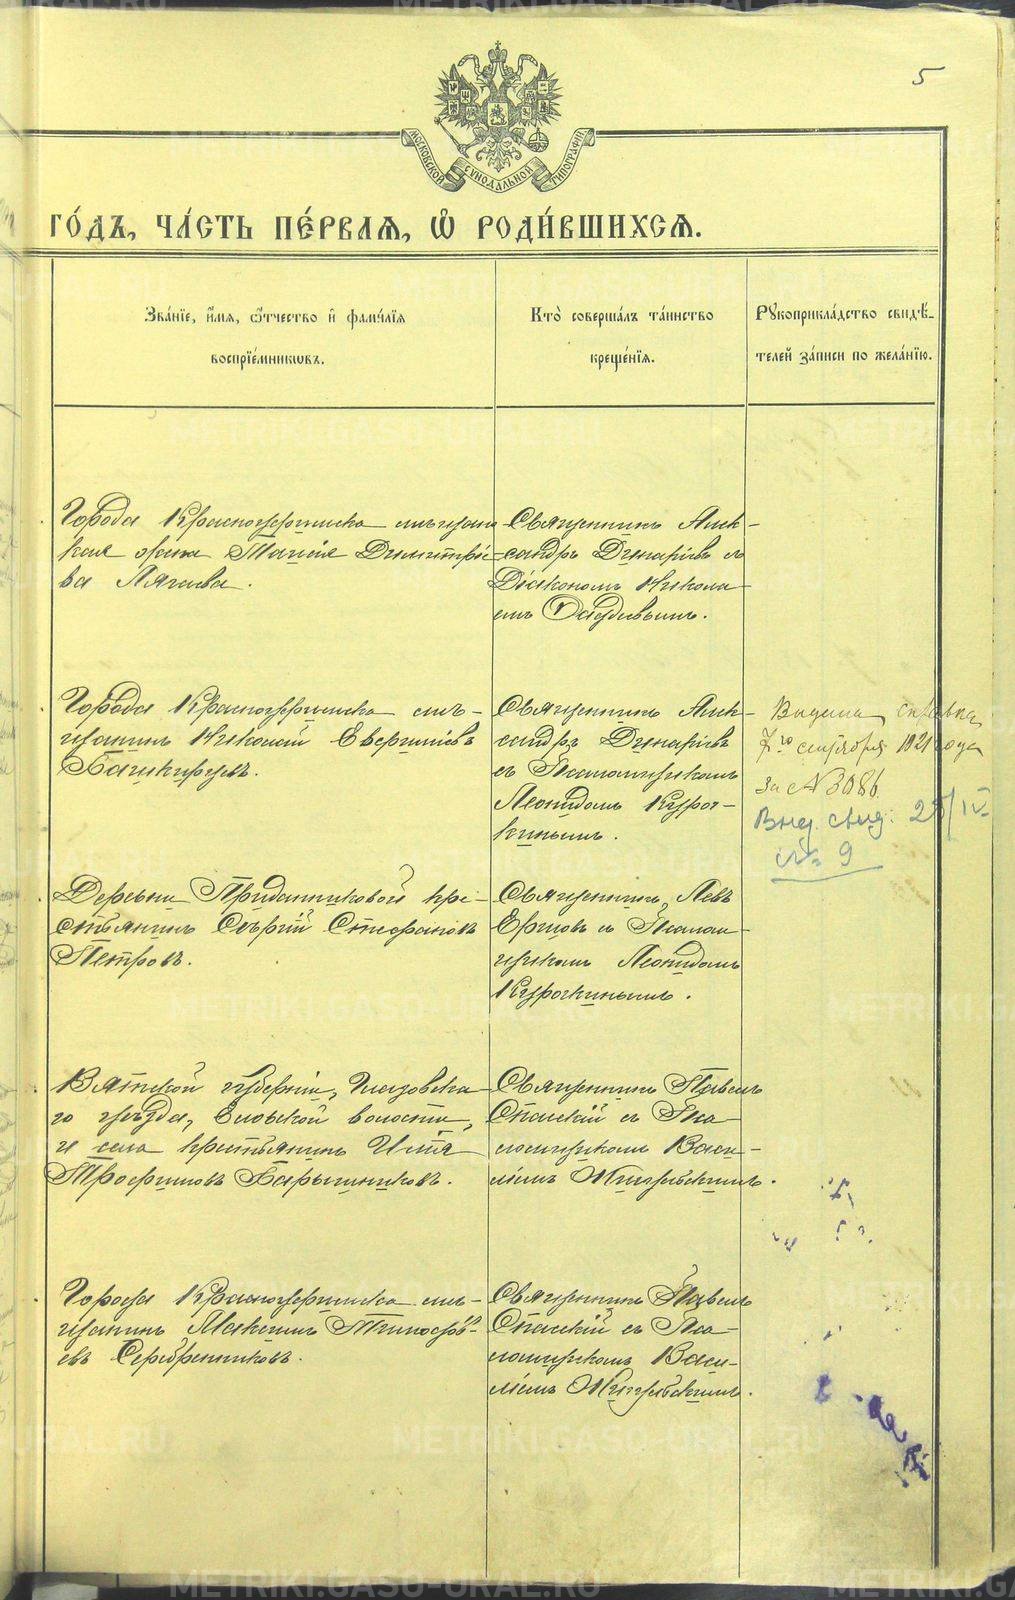 5
МОСКОВСКОЙ СѴНОДАЛЬНОЙ ТИПОГРАФІИ
ГО́ДЪ, ЧА́СТЬ ПЕ́РВАѦ, Ѡ҆ РОДИ́ВШИХСѦ.
Зва́нїе, и҆́мѧ, ѻ҆́тчество и҆ фами́лїѧ
воспрїе́мникѡвъ.
Кто̀ соверша́лъ та́инство
креще́нїѧ.
Рꙋкоприкла́дство свидѣ́-
телей за́писи по жела́нїю.
Города Красноуфимска мѣщанс-
кая жена Таисія Димитріе-
ва Лягаева.
Священникъ Алек-
сандръ Динаріевъ съ
Діакономъ Никола-
емъ
Города Красноуфимска мѣ-
щанинъ Николай Евгеніевъ
Башкирцевъ.
Священникъ Алек-
сандръ Динаріевъ
съ Псаломщикомъ
Леонидомъ Куроч-
кинымъ.
Выдана справка
7го сентября 1921 года
за № 3086.
Выд. свид. 25/IV
№ 9
Деревни Приданниковой кре-
стьянинъ Сергій Стефановъ
Петровъ.
Священникъ Левъ
Ершовъ съ Псалом-
щикомъ Леонидомъ
Курочкинымъ.
Вятской губерніи, Глазовска-
го уѣзда, Еловской волости,
и села крестьянинъ Илія
Трофимовъ Барышниковъ.
Священникъ Павелъ
Спасскій съ Пса-
ломщикомъ Васи-
ліемъ
Города Красноуфимска мѣ-
щанинъ Максимъ Тимофѣ-
евъ Серебренниковъ.
Священникъ Павелъ
Спасскій съ Пса-
ломщикомъ Васи-
ліемъ
METRIKI.GASO-URAL.RU